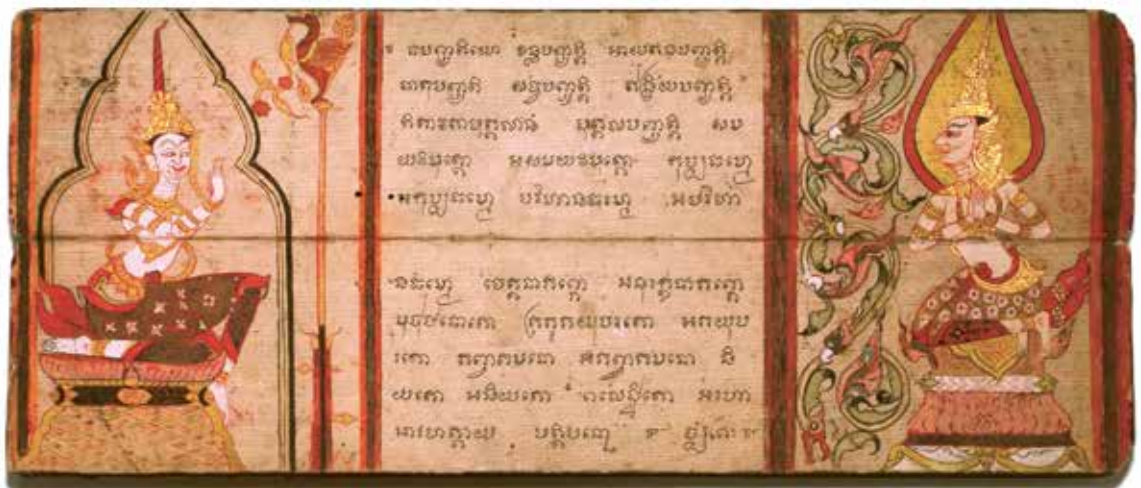 ឆបញ្ញតិយោ ខន្ធបញ្ញត្តិ អាយតនបញ្ញត្តិ
ធាតុបញ្ញតិ សច្ចបញ្ញត្តិ ឥន្ទ្រិយបញ្ញត្តិ
កិតាវតាបុគ្គលានំ បុគ្គលបញ្ញត្តិ សម
យវិមុត្តោ អសមយវិមុត្តោ កុប្បធម្មោ
អកុប្បធម្មោ បរិហានធម្មោ អបរិហា
នធម្មោ ចេតនាភព្វោ អនុរក្ខនាភព្វោ
បុថុជ្ជនោគោ ត្រភូភយូបរតោ អភយូប
រតោ ភព្វាគមនោ អភព្វាគមនោ និ
យតោ អនិយតោ ផលេដ្ឋិតោ អរហា
អារហត្តាយ